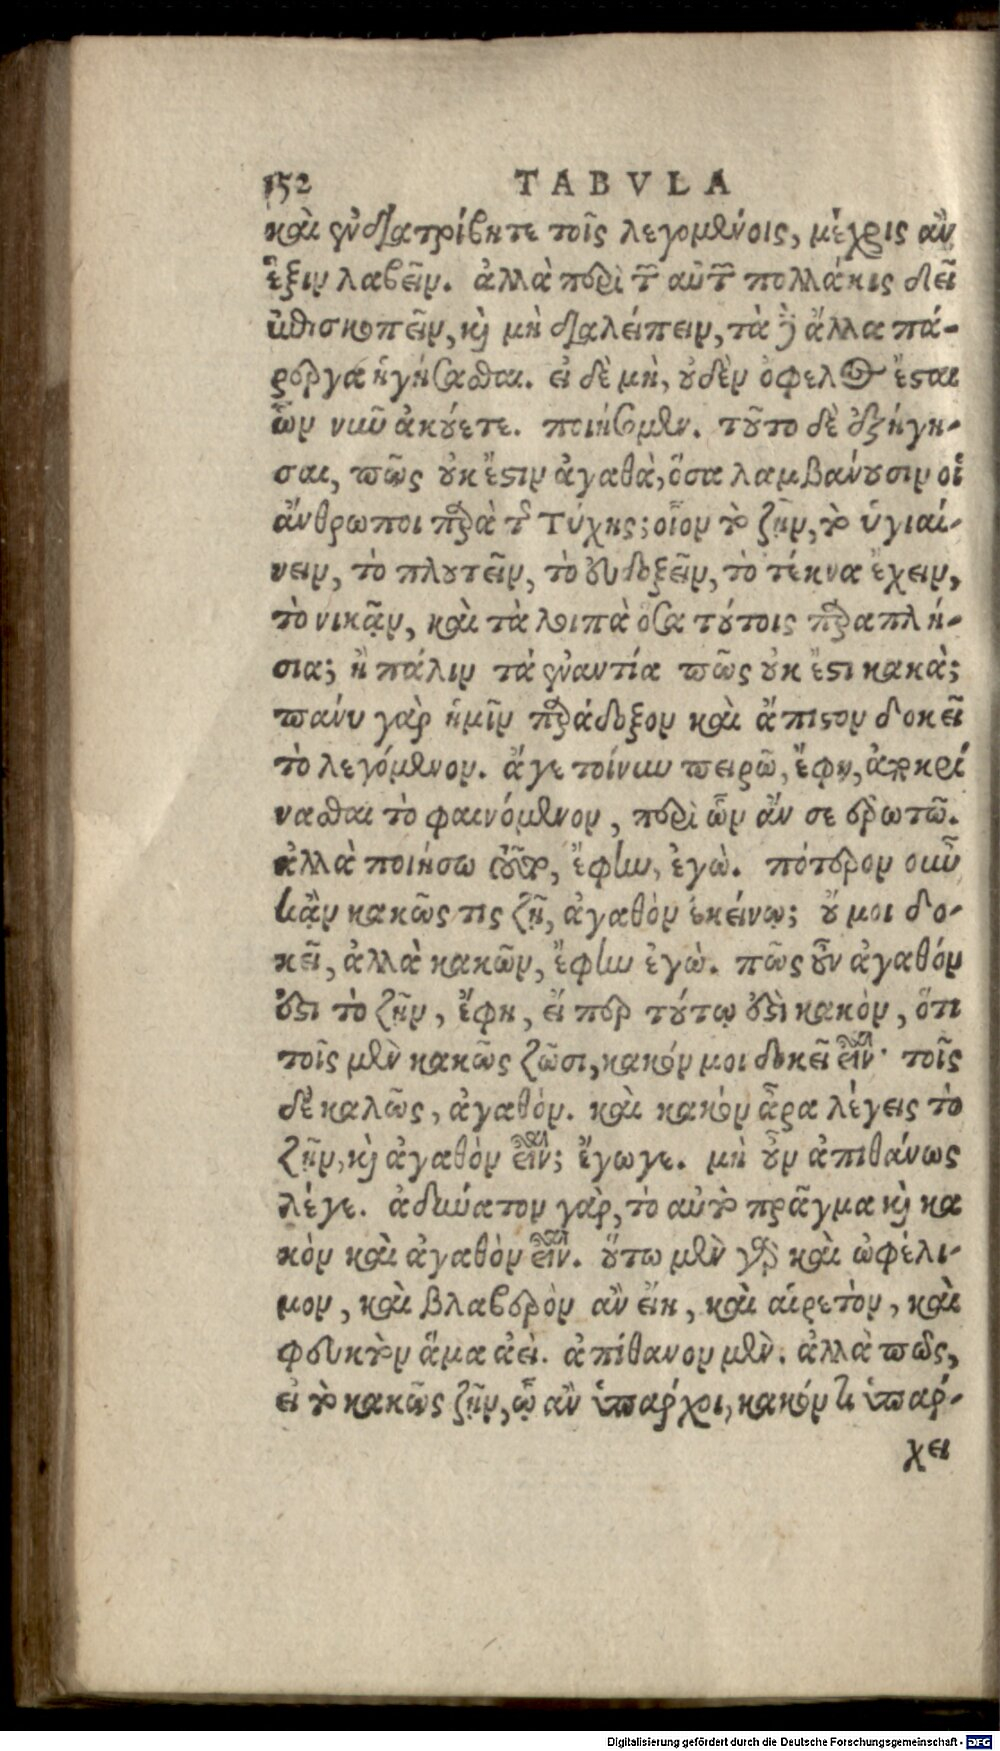 152 TABVLA
καὶ ἐνδιατρίβητε τοῖς λεγομένοις, μέχρις ἂν
ἕξιν λαβεῖν. ἀλλὰ περὶ τῶν αὐτῶν πολλάκις δεῖ
ἐπισκοπεῖν, καὶ μὴ διαλείπειν, τὰ δ' ἄλλα πά-
ρεργα ἡγήσασθαι. εἰ δὲ μὴ, οὐδὲν ὄφελος ἔσται
ὧν νῦν ἀκούετε. ποιήσομεν. τοῦτο δὲ ἐξήγη-
σαι, πῶς οὐκ ἔστιν ἀγαθὰ, ὅσα λαμβάνουσιν οἱ
ἄνθρωποι παρὰ τῆς Τύχης; οἷον τὸ ζῇν, τὸ ὑγιαί-
νειν, τὸ πλουτεῖν, τὸ εὐδοξεῖν, τὸ τέκνα ἔχειν,
τὸ νικᾷν, καὶ τὰ λοιπὰ ὅσα τούτοις παραπλή-
σια; ἢ πάλιν τὰ ἐναντία πῶς οὐκ ἔστι κακά;
πάνυ γὰρ ἡμῖν παράδοξον καὶ ἄπιστον δοκεῖ
τὸ λεγόμενον. ἄγε τοίνυν πειρῶ, ἔφη, ἀποκρί
νασθαι τὸ φαινόμενον, περὶ ὧν ἄν σε ἐρωτῶ.
ἀλλὰ ποιήσω τοῦτο, ἔφην, ἐγώ. πότερον οὖν
κἂν κακῶς τις ζῇ, ἀγαθὸν ἐκείνῳ; οὔ μοι δο-
κεῖ, ἀλλὰ κακὸν, ἔφην ἐγώ. πῶς οὖν ἀγαθόν
ἐστι τὸ ζῇν, ἔφη, εἴπερ τούτῳ ἐστὶ κακὸν, ὅτι
τοῖς μὲν κακῶς ζῶσι, κακόν μοι δοκεῖ εἶναι· τοῖς
δὲ καλῶς, ἀγαθόν. καὶ κακὸν ἄρα λέγεις τὸ
ζῇν, καὶ ἀγαθὸν εἶναι; ἔγωγε. μὴ οὖν ἀπιθάνως
λέγε. ἀδύνατον γὰρ, τὸ αὐτὸ πρᾶγμα καὶ κα
κὸν καὶ ἀγαθὸν εἶναι. οὕτω μὲν γὰρ καὶ ὠφέλι-
μον, καὶ βλαβερὸν ἂν εἴη, καὶ αἱρετὸν, καὶ
φευκτὸν ἅμα ἀεί. ἀπίθανον μέν. ἀλλὰ πῶς,
εἰ τὸ κακῶς ζῇν, ᾧ ἂν ὑπάρχοι, κακόν τι ὑπάρ-
χει
Digitalisierung gefördert durch die Deutsche Forschungsgemeinschaft - DFG